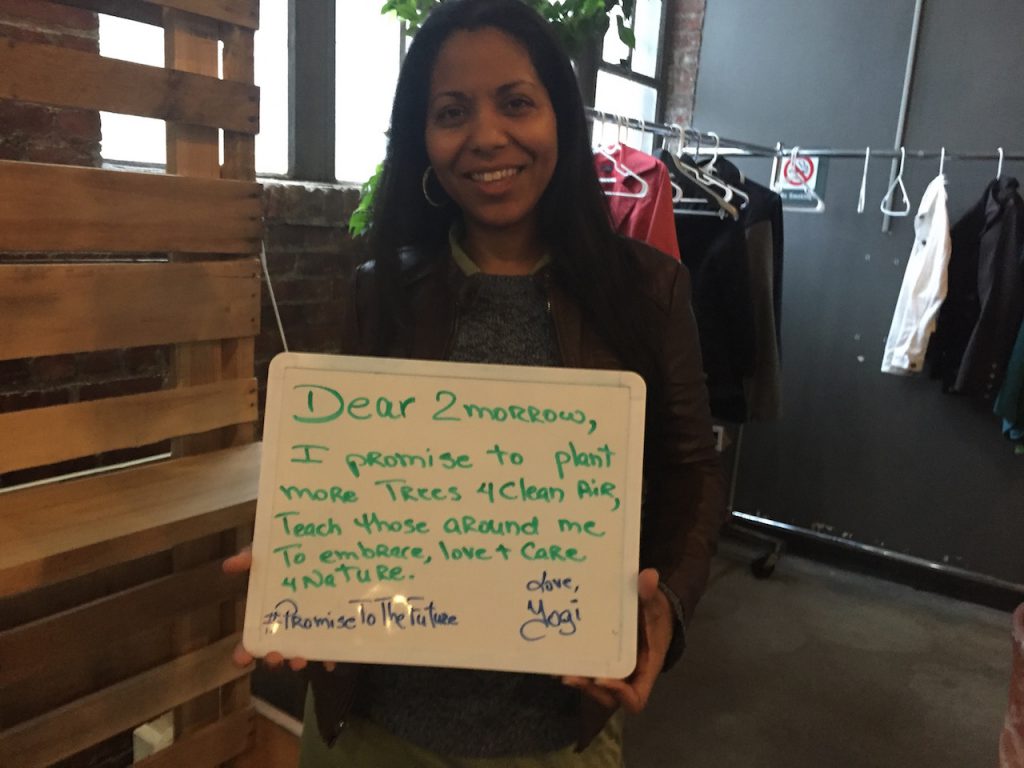 Dear 2morrow,
I promise to plant
more Trees 4 Clean Air,
Teach those around me
To embrace, love + Care
4 Nature.
Love,
#PromiseToTheFuture
Yogi